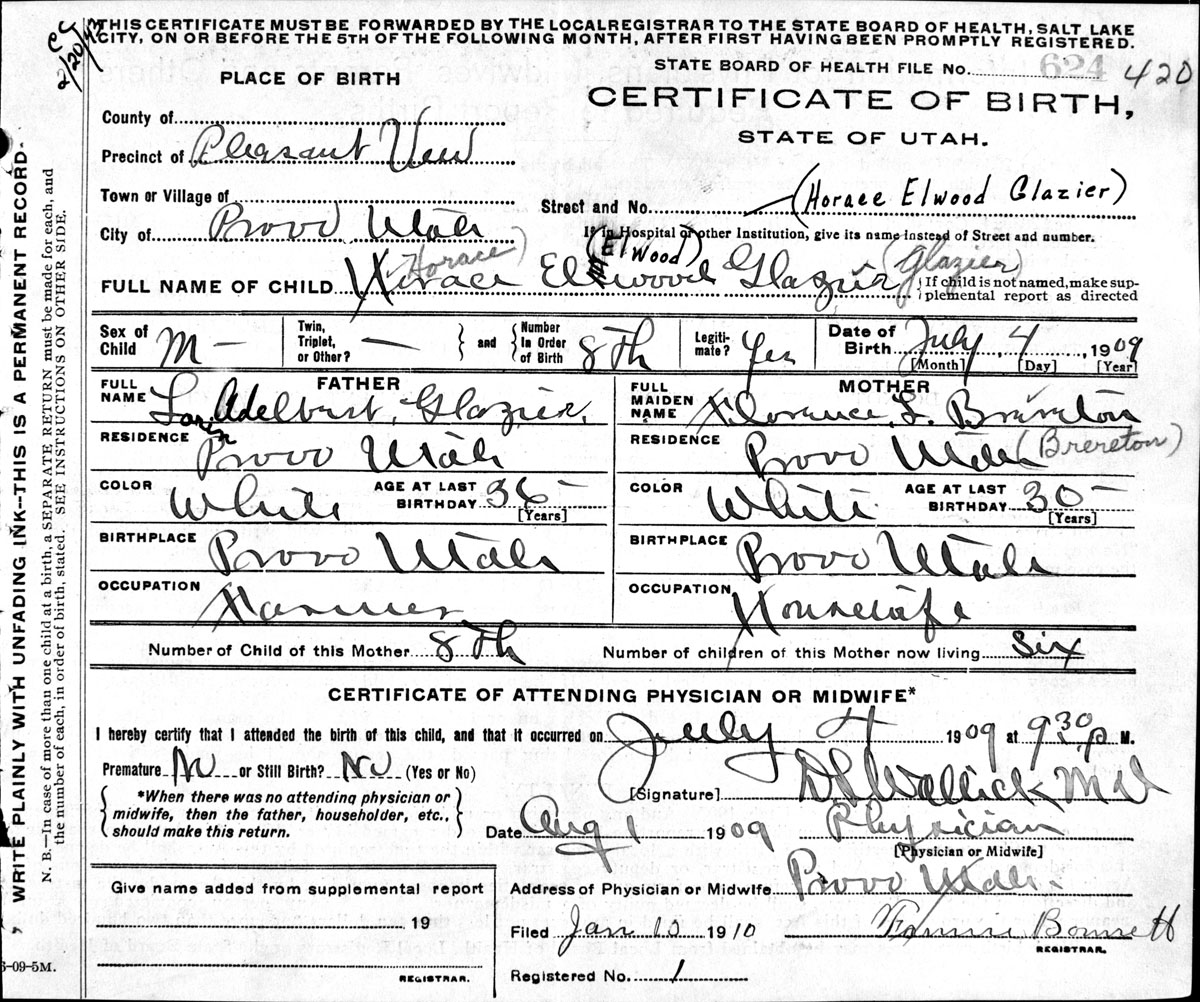 THIS CERTIFICATE MUST BE FORWARDED BY THE LOCAL REGISTRAR TO THE STATE BOARD OF HEALTH, SALT LAKE
CITY, ON OR BEFORE THE 5TH OF THE FOLLOWING MONTH, AFTER FIRST HAVING BEEN PROMPTLY REGISTERED.
2/20
STATE BOARD OF HEALTH FILE No. 624 420
PLACE OF BIRTH
CERTIFICATE OF BIRTH,
STATE OF UTAH.
County of
Precinct of Pleasant View
Town or Village of
Street and No. (Horace Elwood Glazier)
City of Provo Utah
If in Hospital or other Institution, give its name instead of Street and number.
(Horace) (Elwood) (Glazier)
FULL NAME OF CHILD Horace Elwood Glazier
If child is not named, make sup-
plemental report as directed
Sex of Child M — Twin, Triplet, or Other? — and Number In Order of Birth 8th Legiti-mate? Yes Date of Birth July 4, 1909
[Month] [Day] [Year]
FATHER
FULL NAME Loren Adelbert Glazier
RESIDENCE Provo Utah
COLOR White AGE AT LAST BIRTHDAY 36 —
[Years]
BIRTHPLACE Provo Utah
OCCUPATION Farmer
MOTHER
FULL MAIDEN NAME Florence L. Brereton
RESIDENCE Provo Utah (Brereton)
COLOR White AGE AT LAST BIRTHDAY 30 —
[Years]
BIRTHPLACE Provo Utah
OCCUPATION Housewife
Number of Child of this Mother 8th Number of children of this Mother now living Six
CERTIFICATE OF ATTENDING PHYSICIAN OR MIDWIFE*
I hereby certify that I attended the birth of this child, and that it occurred on July 4 1909 at 9 30 P M.
Premature No or Still Birth? No (Yes or No)
*When there was no attending physician or
midwife, then the father, householder, etc.,
should make this return.
[Signature] Wallick MD
Date Aug 1 1909 Physician
[Physician or Midwife]
Give name added from supplemental report
19
REGISTRAR.
Address of Physician or Midwife Provo Utah.
Filed Jan 1910 Bonnett
REGISTRAR.
Registered No. 1
WRITE PLAINLY WITH UNFADING INK--THIS IS A PERMANENT RECORD.
N. B.—In case of more than one child at a birth, a SEPARATE RETURN must be made for each, and
the number of each, in order of birth, stated. SEE INSTRUCTIONS ON OTHER SIDE.
6-09-5M.